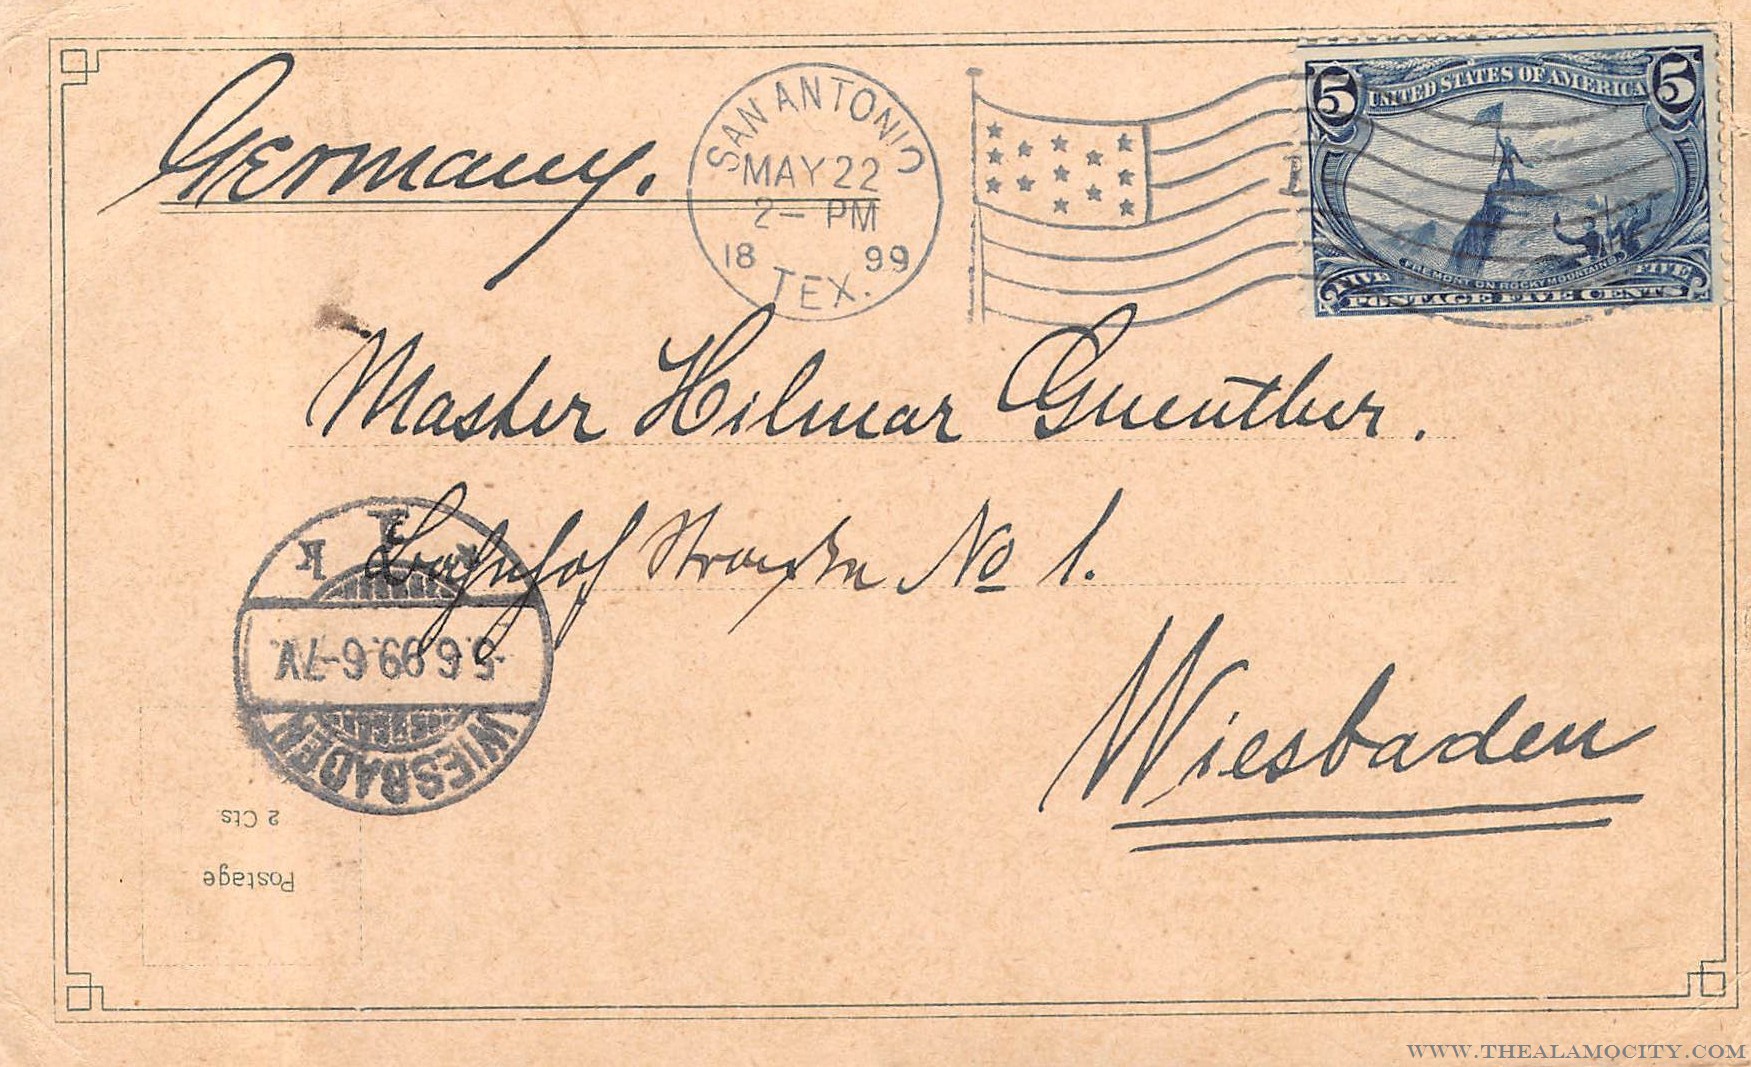 Germany.
SAN ANTONIO
MAY 22
2 - PM
18 99
TEX.
1
5 UNITED STATES OF AMERICA 5
FREMONT ON ROCKY MOUNTAINS
FIVE FIVE
POSTAGE FIVE CENTS
Master Hilmar Guenther.
Bahnhof Strasse No 1.
Wiesbaden
WIESBADEN
-5.6.99.6-7V.
* 1 k
Postage
2 Cts
WWW.THEALAMOCITY.COM